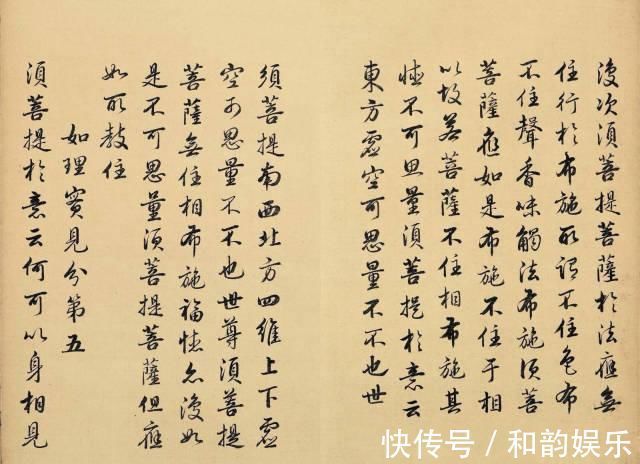 復次須菩提菩薩於法應無
住行於布施所謂不住色布
不住聲香味觸法布施須菩
菩薩應如是布施不住于相
以故若菩薩不住相布施其
德不可思量須菩提於意云
東方虛空可思量不不也世
須菩提南西北方四維上下虛
空可思量不不也世尊須菩提
菩薩無住相布施福德亦復如
是不可思量須菩提菩薩但應
如所教住
如理實見分第五
須菩提於意云何可以身相見
快传号/和韵娱乐